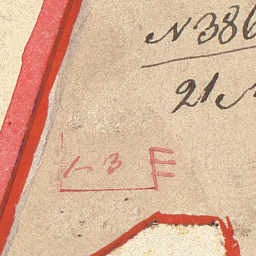 N 386
21
3 E